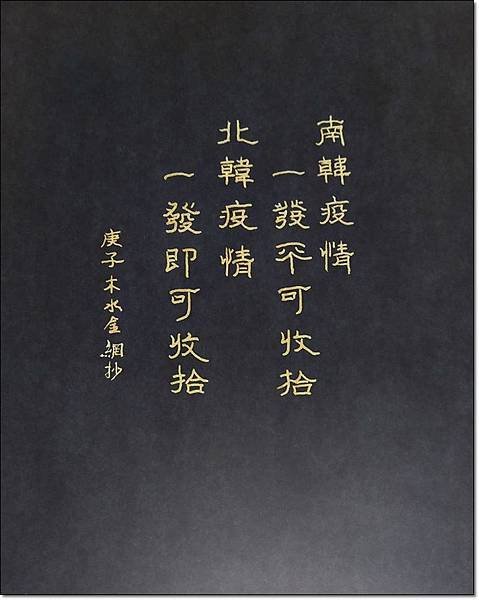 南韓疫情
一發不可收拾
北韓疫情
一發即可收拾
庚子木水金網抄